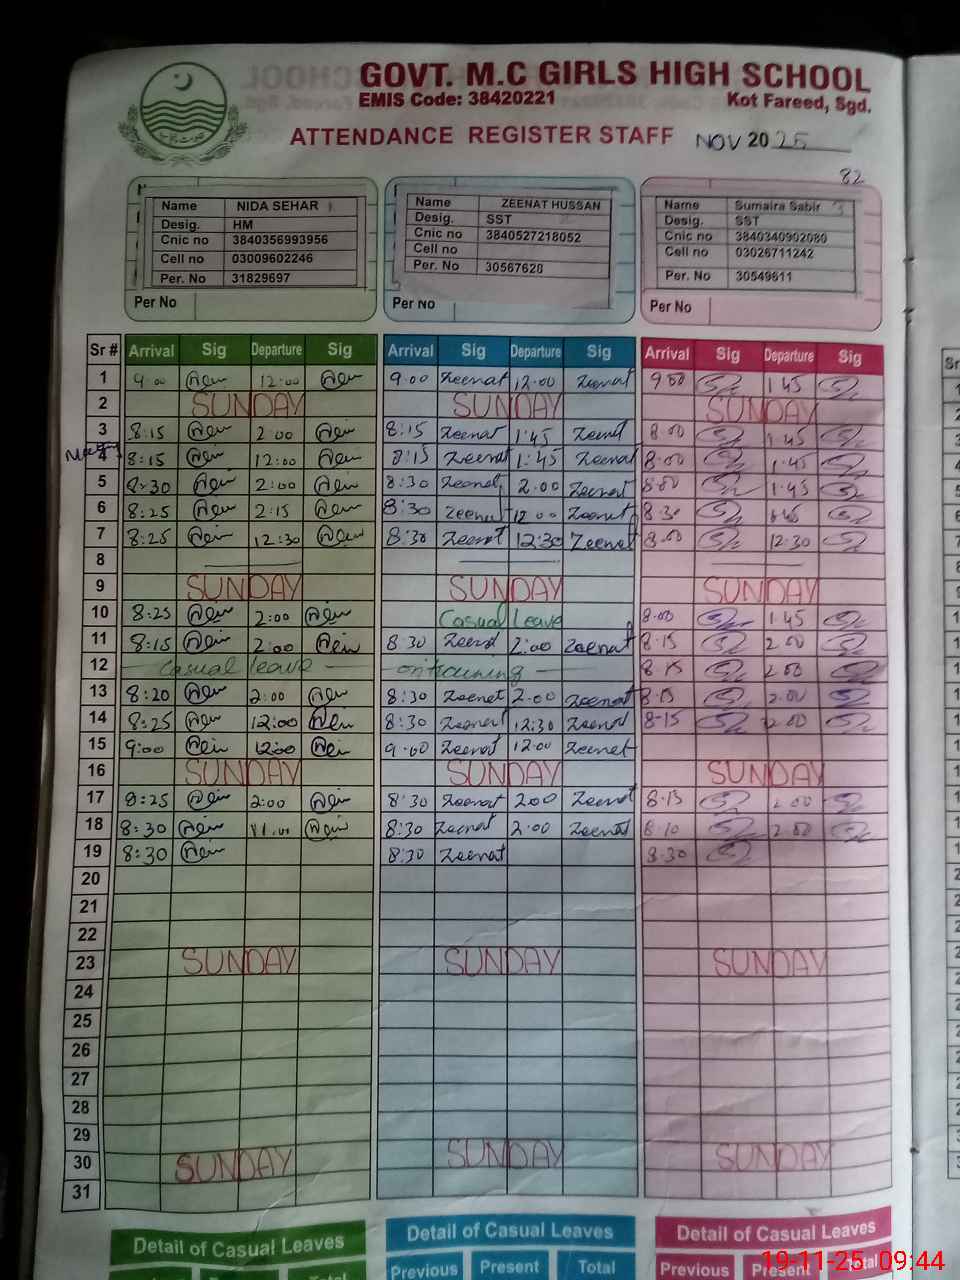 GOVT. M.C GIRLS HIGH SCHOOL
EMIS Code: 38420221 Kot Fareed, Sgd.
ATTENDANCE REGISTER STAFF NOV 2025
82
Name NIDA SEHAR
Desig. HM
Cnic no 3840356993956
Cell no 03009602246
Per. No 31829697
Per No
Name ZEENAT HUSSAN
Desig. SST
Cnic no 3840527218052
Cell no
Per. No 30567620
Per No
Name Sumaira Sabir 3
Desig. SST
Cnic no 3840340902080
Cell no 03026711242
Per. No 30549611
Per No
Sr # Arrival Sig Departure Sig Arrival Sig Departure Sig Arrival Sig Departure Sig
1 9:00 12:00 9:00 Zeenat 12:00 Zeenat 9:00 1:45
2 SUNDAY SUNDAY SUNDAY
3 8:15 2:00 8:15 Zeenat 1:45 Zeenat 8:00 1:45
Meeting 4 8:15 12:00 8:15 Zeenat 1:45 Zeenat 8:00 1:45
5 8:30 2:00 8:30 Zeenat 2:00 Zeenat 8:00 1:45
6 8:25 2:15 8:30 Zeenat 12:00 Zeenat 8:30
7 8:25 12:30 8:30 Zeenat 12:30 Zeenat 8:00 12:30
8
9 SUNDAY SUNDAY SUNDAY
10 8:25 2:00 Casual Leave 8:00 1:45
11 8:15 2:00 8:30 Zeenat 2:00 Zeenat 8:15 2:00
12 Casual leave on training 8:15 2:00
13 8:20 2:00 8:30 Zeenat 2:00 Zeenat 8:15 2:00
14 8:25 12:00 8:30 Zeenat 12:30 Zeenat 8:15 12:00
15 9:00 12:00 9:00 Zeenat 12:00 Zeenat
16 SUNDAY SUNDAY SUNDAY
17 8:25 2:00 8:30 Zeenat 2:00 Zeenat 8:15 2:00
18 8:30 11:00 8:30 Zeenat 2:00 Zeenat 8:10 2:00
19 8:30 8:30 Zeenat 8:30
20
21
22
23 SUNDAY SUNDAY SUNDAY
24
25
26
27
28
29
30 SUNDAY SUNDAY SUNDAY
31
Detail of Casual Leaves Detail of Casual Leaves Detail of Casual Leaves
Previous Present Total Previous Present Total
19-11-25 09:44